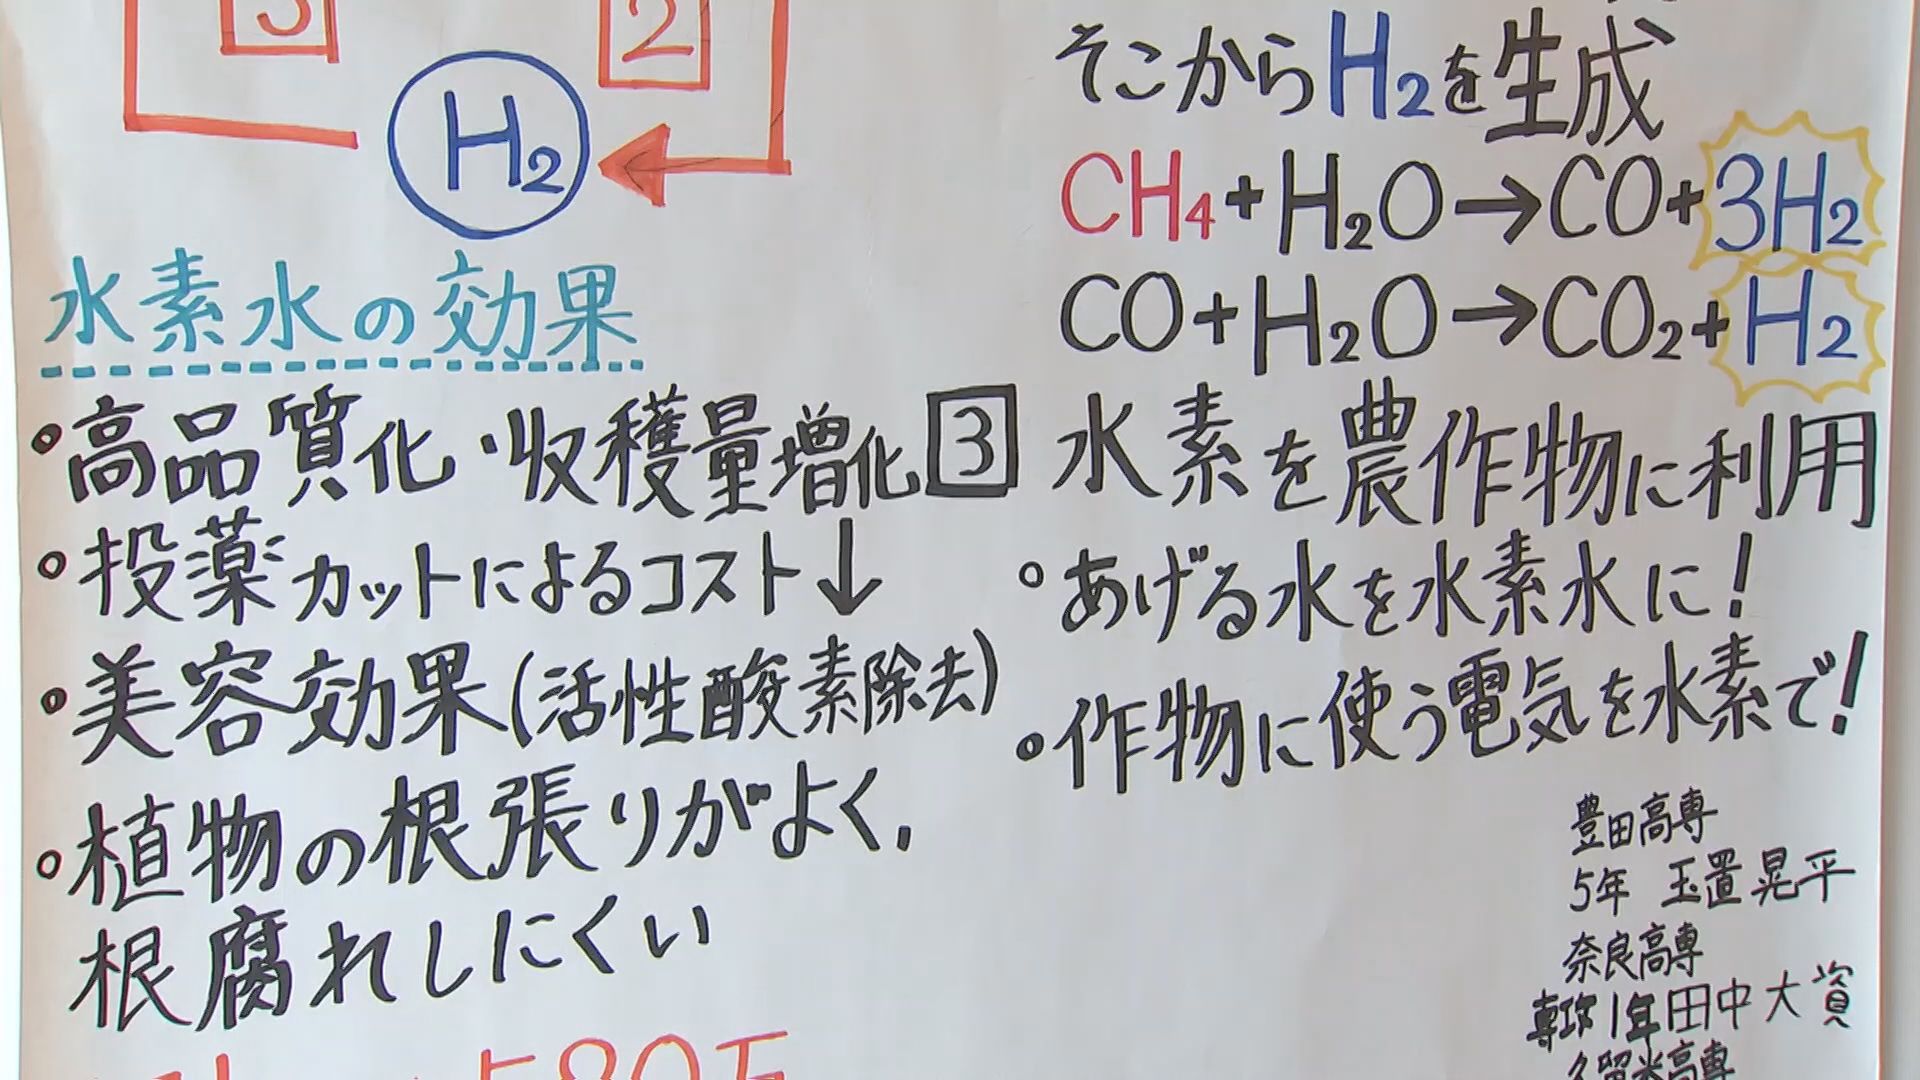 3
2
H₂
水素水の効果
・高品質化・収穫量増化
・投薬カットによるコスト↓
・美容効果(活性酸素除去)
・植物の根張りがよく,
根腐れしにくい
580万
そこからH₂を生成
CH₄+H₂O→CO+3H₂
CO+H₂O→CO₂+H₂
3 水素を農作物に利用
・あげる水を水素水に!
・作物に使う電気を水素で!
豊田高専
5年 玉置晃平
奈良高専
専攻1年田中大資
久留米高専